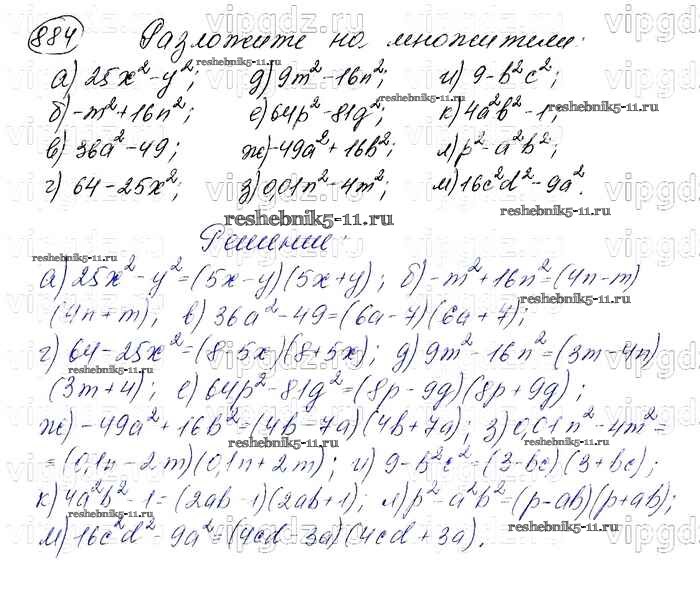 884 Разложите на множители:
а) 25x²-y²; д) 9m²-16n²; и) 9-b²c²;
б) -m²+16n²; е) 64p²-81q²; к) 4a²b²-1;
в) 36a²-49; ж) -49a²+16b²; л) p²-a²b²;
г) 64-25x²; з) 0,01n²-4m²; м) 16c²d²-9a².
Решение:
а) 25x²-y²=(5x-y)(5x+y); б) -m²+16n²=(4n-m)
(4n+m); в) 36a²-49=(6a-7)(6a+7);
г) 64-25x²=(8-5x)(8+5x); д) 9m²-16n²=(3m-4n)
(3m+4); е) 64p²-81q²=(8p-9q)(8p+9q);
ж) -49a²+16b²=(4b-7a)(4b+7a); з) 0,01n²-4m²=
=(0,1n-2m)(0,1n+2m); и) 9-b²c²=(3-bc)(3+bc);
к) 4a²b²-1=(2ab-1)(2ab+1); л) p²-a²b²=(p-ab)(p+ab);
м) 16c²d²-9a²=(4cd-3a)(4cd+3a).
reshebnik5-11.ru
vipgdz.com